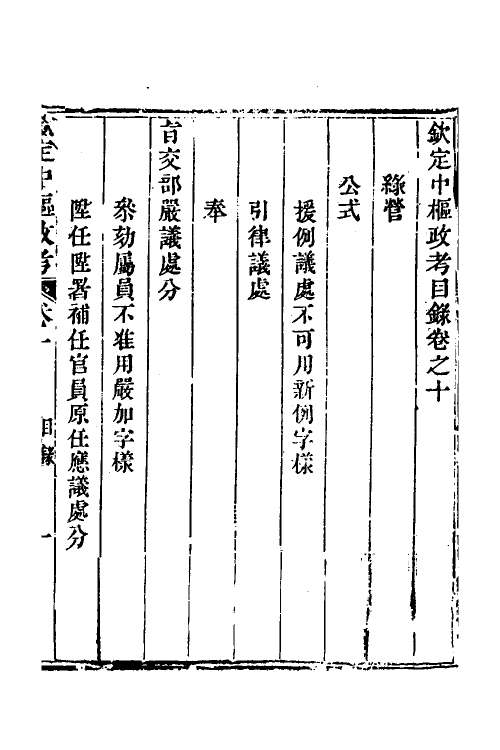 欽定中樞政考目錄卷之十
綠營
公式
援例議處不可用新例字樣
引律議處
奉
旨交部嚴議處分
叅劾屬員不准用嚴加字樣
陞任陞署補任官員原任應議處分
欽定中樞政考 卷十 目錄 一